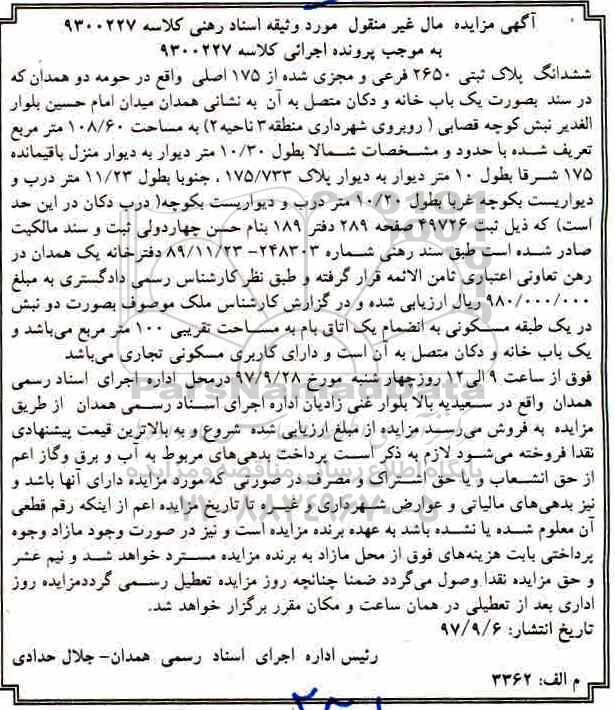 آگهی مزایده مال غیر منقول مورد وثیقه اسناد رهنی کلاسه ۹۳۰۰۲۲۷
به موجب پرونده اجرائی کلاسه ۹۳۰۰۲۲۷
ششدانگ پلاک ثبتی ۲۶۵۰ فرعی و مجزی شده از ۱۷۵ اصلی واقع در حومه دو همدان که
در سند بصورت یک باب خانه و دکان متصل به آن به نشانی همدان میدان امام حسین بلوار
الغدیر نبش کوچه قصابی ( روبروی شهرداری منطقه۳ ناحیه۲) به مساحت ۱۰۸/۶۰ متر مربع
تعریف شده با حدود و مشخصات شمالا بطول ۱۰/۳۰ متر دیوار به دیوار منزل باقیمانده
۱۷۵ شرقا بطول ۱۰ متر دیوار به دیوار پلاک ۱۷۵/۷۳۳ ، جنوبا بطول ۱۱/۲۳ متر درب و
دیواریست بکوچه غربا بطول ۱۰/۲۰ متر درب و دیواریست بکوچه( درب دکان در این حد
است) که ذیل ثبت ۴۹۷۲۶ صفحه ۲۸۹ دفتر ۱۸۹ بنام حسن چهاردولی ثبت و سند مالکیت
صادر شده است طبق سند رهنی شماره ۲۴۸۳۰۳- ۸۹/۱۱/۲۳ دفترخانه یک همدان در
رهن تعاونی اعتباری ثامن الائمه قرار گرفته و طبق نظر کارشناس رسمی دادگستری به مبلغ
۹۸۰/۰۰۰/۰۰۰ ریال ارزیابی شده و در گزارش کارشناس ملک موصوف بصورت دو نبش
در یک طبقه مسکونی به انضمام یک اتاق بام به مساحت تقریبی ۱۰۰ متر مربع می‌باشد و
یک باب خانه و دکان متصل به آن است و دارای کاربری مسکونی تجاری می‌باشد
فوق از ساعت ۹ الی۱۲ روزچهار شنبه مورخ ۹۷/۹/۲۸ درمحل اداره اجرای اسناد رسمی
همدان واقع در سعیدیه بالا بلوار غنی زادیان اداره اجرای اسناد رسمی همدان از طریق
مزایده به فروش می‌رسد مزایده از مبلغ ارزیابی شده شروع و به بالاترین قیمت پیشنهادی
نقدا فروخته می‌شود لازم به ذکر است پرداخت بدهی‌های مربوط به آب و برق وگاز اعم
از حق انشعاب و یا حق اشتراک و مصرف در صورتی که مورد مزایده دارای آنها باشد و
نیز بدهی‌های مالیاتی و عوارض شهرداری و غیره تا تاریخ مزایده اعم از اینکه رقم قطعی
آن معلوم شده یا نشده باشد به عهده برنده مزایده است و نیز در صورت وجود مازاد وجوه
پرداختی بابت هزینه‌های فوق از محل مازاد به برنده مزایده مسترد خواهد شد و نیم عشر
و حق مزایده نقدا وصول می‌گردد ضمنا چنانچه روز مزایده تعطیل رسمی گرددمزایده روز
اداری بعد از تعطیلی در همان ساعت و مکان مقرر برگزار خواهد شد.
تاریخ انتشار: ۹۷/۹/۶
رئیس اداره اجرای اسناد رسمی همدان- جلال حدادی
م الف: ۳۳۶۲
ParsNamadData
پایگاه اطلاع رسانی مناقصه و مزایده
۰۲۱-۸۸۳۴۹۶۷۰-۵